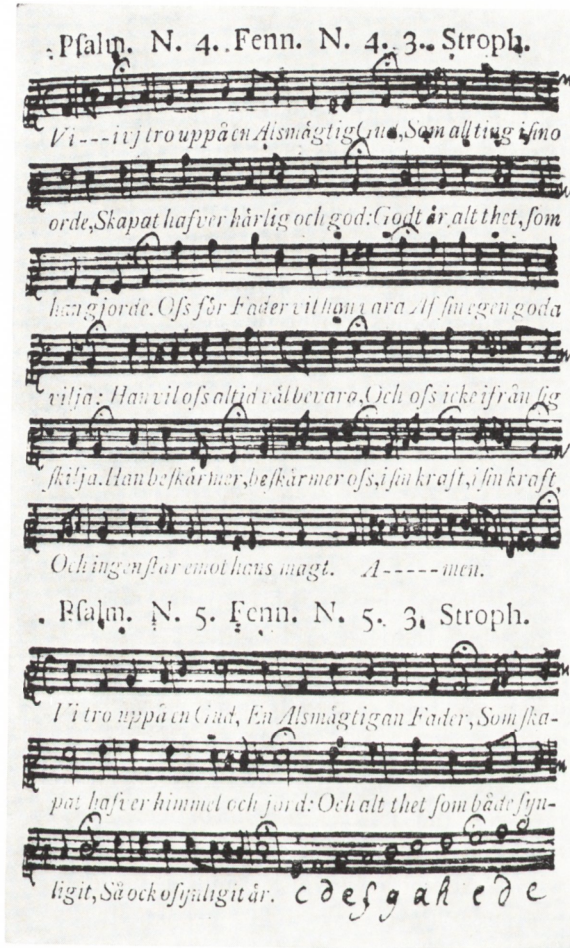 Pſalm. N. 4. Fenn. N. 4. 3. Stroph.
Vi---ivj tro uppå en Alsmägtig Gud, Som all ting i ſino
orde, Skapat hafver härlig och god: Godt är alt thet, ſom
han gjorde. Oſs för Fader vil han vara Af ſin egen goda
vilja: Han vil oſs altid väl bevara, Och oſs icke ifrån ſig
ſkilja. Han beſkärmer, beſkärmer oſs, i ſin kraft, i ſin kraft,
Och ingen ſtår emot hans magt. A-----men.
Pſalm. N. 5. Fenn. N. 5. 3. Stroph.
Vi tro uppå en Gud, En Alsmägtigan Fader, Som ſka-
pat hafver himmel och jord: Och alt thet ſom både ſyn-
ligit, Så ock oſynligit är. c d e f g a h c d e